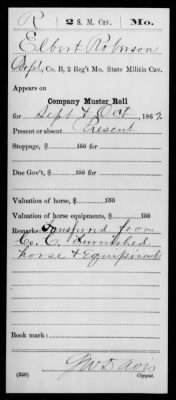 R | 2 S. M. Cav. | Mo.
Elbert Robnson
Corpl, Co. B, 2 Reg't Mo. State Militia Cav.
Appears on
Company Muster Roll
for Sept & Oct, 1862
Present or absent Present
Stoppage, $ 100 for
Due Gov't, $ 100 for
Valuation of horse, $ 100
Valuation of horse equipments, $ 100
Remarks: Transferred from
Co. C. Furnished
horse & Equipments
Book mark:
J W Davis
(358) Copyist.